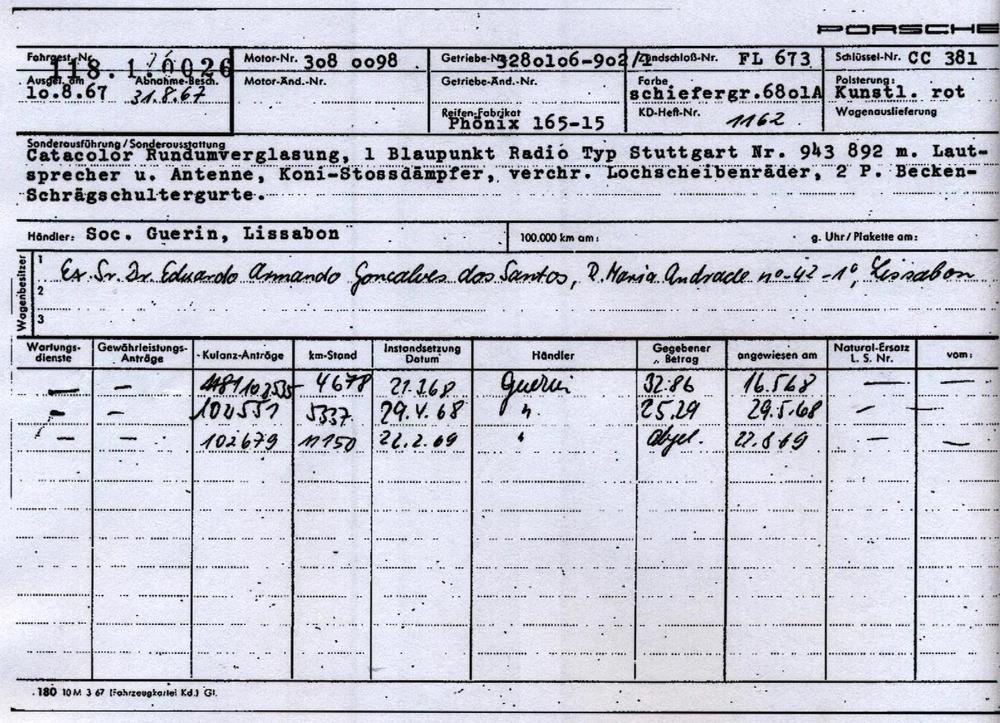 PORSCHE
Fahrgest.-Nr. 118.1.0026 Motor-Nr. 308 0098 Getriebe-Nr. 328o1o6-9o2/1 Zündschloß-Nr. FL 673 Schlüssel-Nr. CC 381
Ausgel. am 1o.8.67 Abnahme-Besch. 31.8.67 Motor-Änd.-Nr. Getriebe-Änd.-Nr. Farbe schiefergr.68o1A Polsterung: Kunstl. rot
Reifen-Fabrikat Phönix 165-15 KD-Heft-Nr. 1162 Wagenauslieferung
Sonderausführung / Sonderausstattung
Catacolor Rundumverglasung, 1 Blaupunkt Radio Typ Stuttgart Nr. 943 892 m. Laut-
sprecher u. Antenne, Koni-Stossdämpfer, verchr. Lochscheibenräder, 2 P. Becken-
Schrägschultergurte.
Händler: Soc. Guerin, Lissabon 100.000 km am: g. Uhr / Plakette am:
Wagenbesitzer
1 Ex. Sr. Dr. Eduardo Armando Goncalves dos Santos, R. Maria Andrade nº-42-1º, Lissabon
2
3
Wartungs-dienste Gewährleistungs-Anträge Kulanz-Anträge km-Stand Instandsetzung Datum Händler Gegebener Betrag angewiesen am Natural-Ersatz L. S. Nr. vom:
— — 4678 21.3.68 Guerin 32.86 16.5.68 — —
— — 5337 29.4.68 " 25.29 29.5.68 — —
— — 102679 11150 22.2.69 " abgel. 22.8.69 — —
180 10 M 3 67 (Fahrzeugkartei Kd.) Gl.